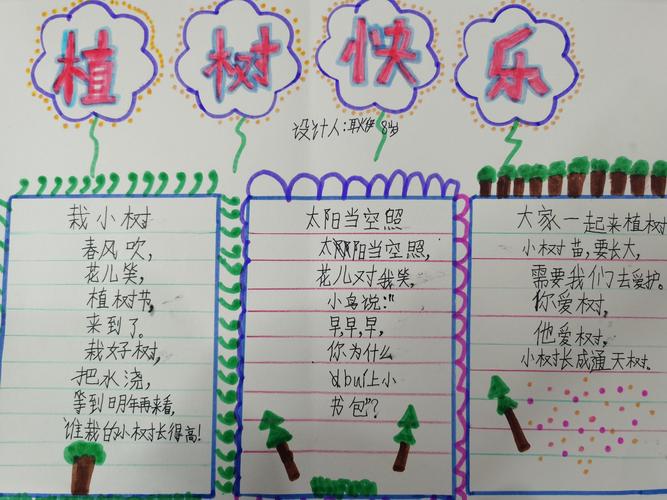 植树快乐
设计人: 8岁
栽小树
春风吹,
花儿笑,
植树节,
来到了。
栽好树,
把水浇,
等到明年再来看,
谁栽的小树长得高!
太阳当空照
太阳当空照,
花儿对我笑,
小鸟说:"
早,早,早,
你为什么
bu上小
书包"?
大家一起来植树
小树苗,要长大,
需要我们去爱护。
你爱树,
他爱树,
小树长成通天树。